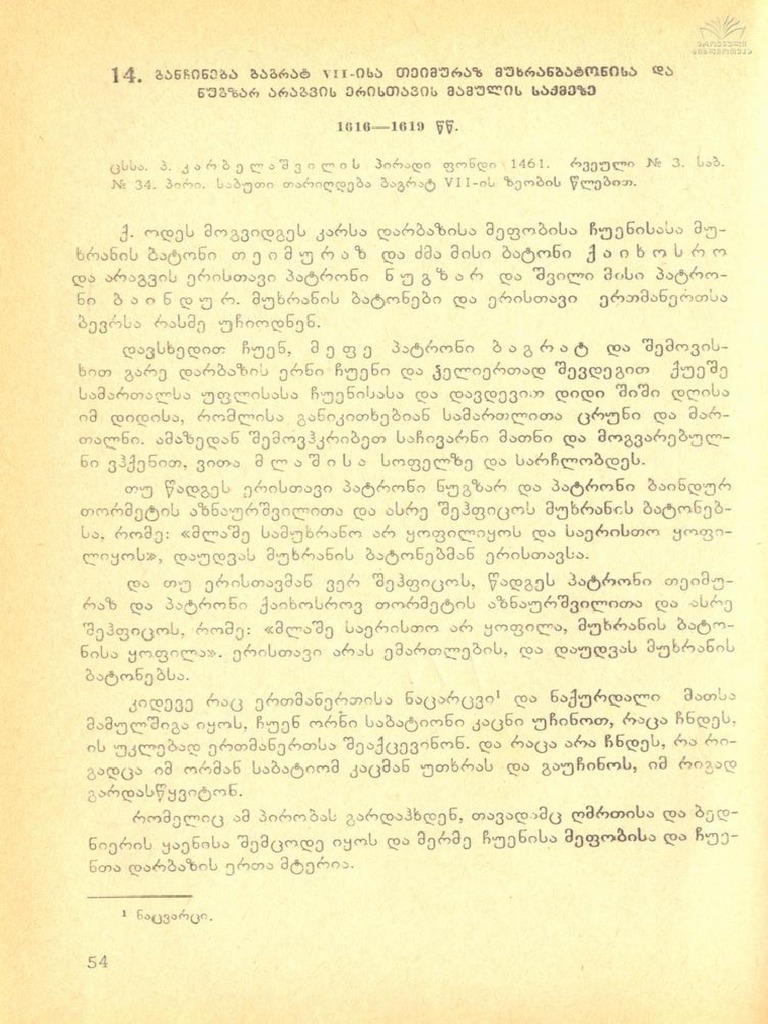 ეროვნული
ბიბლიოთეკა
14. განჩინება ბაგრატ VII-ისა თეიმურაზ მუხრანბატონისა და
ნუგზარ არაგვის ერისთავის მამულის საქმეზე
1616—1619 წწ.
ცსსა. პ. კარბელაშვილის პირადი ფონდი 1461. რვეული № 3. საბ.
№ 34. პირი. საბუთი თარიღდება ბაგრატ VII-ის ზეობის წლებით.
ქ. ოდეს მოგვიდგეს კარსა დარბაზისა მეფობისა ჩუენისასა მუ-
ხრანის ბატონი თეიმურაზ და ძმა მისი ბატონი ქაიხოსრო
და არაგვის ერისთავი პატრონი ნუგზარ და შვილი მისი პატრო-
ნი ბაინდურ. მუხრანის ბატონები და ერისთავი ერთმანერთსა
ბევრსა რასმე უჩიოდნენ.
დავსხედით ჩუენ, მეფე პატრონი ბაგრატ და შემოვის-
ხით გარე დარბაზის ერნი ჩუენი და ჴელიერთად შევდეგით ქუეშე
სამართალსა უფლისასა ჩუენისასა და დავდევით დიდი შიში დღისა
იმ დიდისა, რომლისა განიკითხებიან სამართლითა ცრუნი და მარ-
თალნი. ამაზედან შემოვჰკრიბეთ საჩივარნი მათნი და მოგვარებულ-
ნი ვჰქენით, ვითა მლაშისა სოფელზე და სარჩლობდეს.
თუ წადგეს ერისთავი პატრონი ნუგზარ და პატრონი ბაინდურ
თორმეტის აზნაურშვილითა და ასრე შეჰფიცოს მუხრანის ბატონებ-
სა, რომე: «მლაშე სამუხრანო არ ყოფილიყოს და საერისთო ყოფი-
ლიყოს», დაუდვას მუხრანის ბატონებმან ერისთავსა.
და თუ ერისთავმან ვერ შეჰფიცოს, წადგეს პატრონი თეიმუ-
რაზ და პატრონი ქაიხოსროვ თორმეტის აზნაურშვილითა და ასრე
შეჰფიცოს, რომე: «მლაშე საერისთო არ ყოფილა, მუხრანის ბატო-
ნისა ყოფილა». ერისთავი არას ემართლების, და დაუდვას მუხრანის
ბატონებსა.
კიდევე რაც ერთმანერთისა ნაცარცვი¹ და ნაქურდალი მათსა
მამულშიგა იყოს, ჩუენ ორნი საბატიონი კაცნი უჩინოთ, რაცა ჩნდეს,
ის უკლებად ერთმანერთსა შეაქცევინონ. და რაცა არა ჩნდეს, რა რი-
გადცა იმ ორმან საბატიომ კაცმან უთხრას და გაუჩინოს, იმ რიგად
გარდასწყვიტონ.
რომელიც ამ პირობას გარდაჰხდენ, თავადამც ღმრთისა და ბედ-
ნიერის ყაენისა შემცოდე იყოს და მერმე ჩუენისა მეფობისა და ჩუე-
ნთა დარბაზის ერთა მტერია.
¹ ნაცვარცი.
54